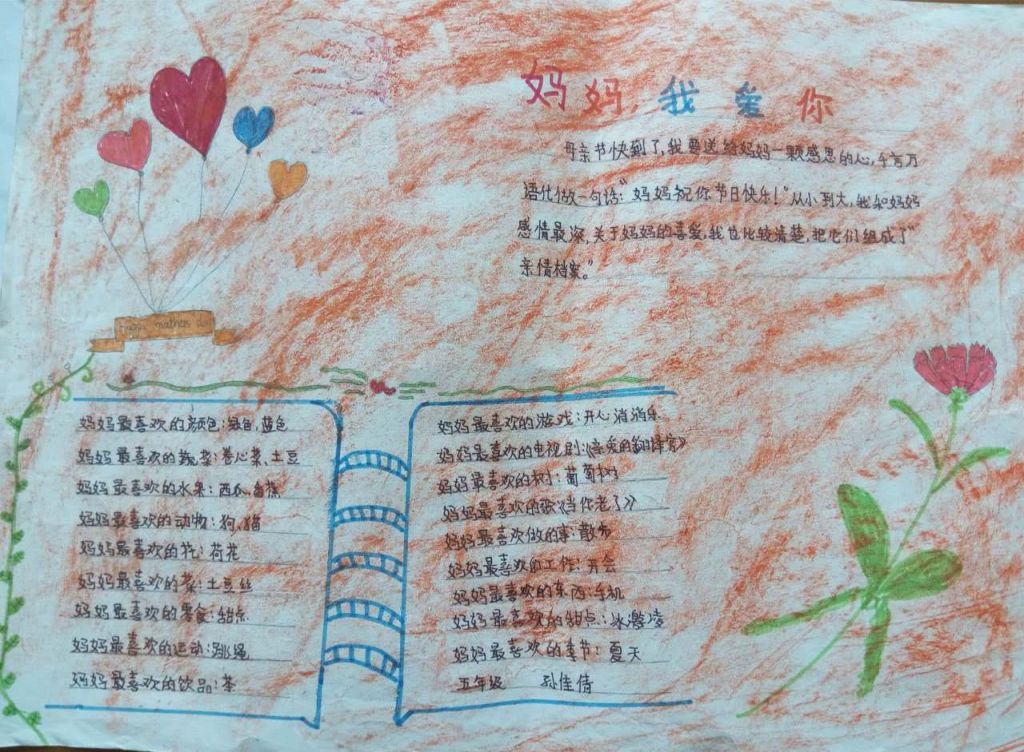 妈妈,我爱你
母亲节快到了,我要送给妈妈一颗感恩的心,千言万
语化做一句话:“妈妈祝你节日快乐!”从小到大,我和妈妈
感情最深,关于妈妈的喜爱,我也比较清楚,把它们组成了“
亲情档案。”
妈妈最喜欢的颜色:绿色,蓝色
妈妈最喜欢的蔬菜:卷心菜、土豆
妈妈最喜欢的水果:西瓜、香蕉
妈妈最喜欢的动物:狗、猫
妈妈最喜欢的花:荷花
妈妈最喜欢的菜:土豆丝
妈妈最喜欢的零食:甜点
妈妈最喜欢的运动:跳绳
妈妈最喜欢的饮品:茶
妈妈最喜欢的游戏:开心消消乐
妈妈最喜欢的电视剧:《亲爱的翻译官》
妈妈最喜欢的树:葡萄树
妈妈最喜欢的歌《当你老了》
妈妈最喜欢做的事:散布
妈妈最喜欢的工作:开会
妈妈最喜欢的东西:手机
妈妈最喜欢的甜点:冰激凌
妈妈最喜欢的季节:夏天
五年级 孙佳倩